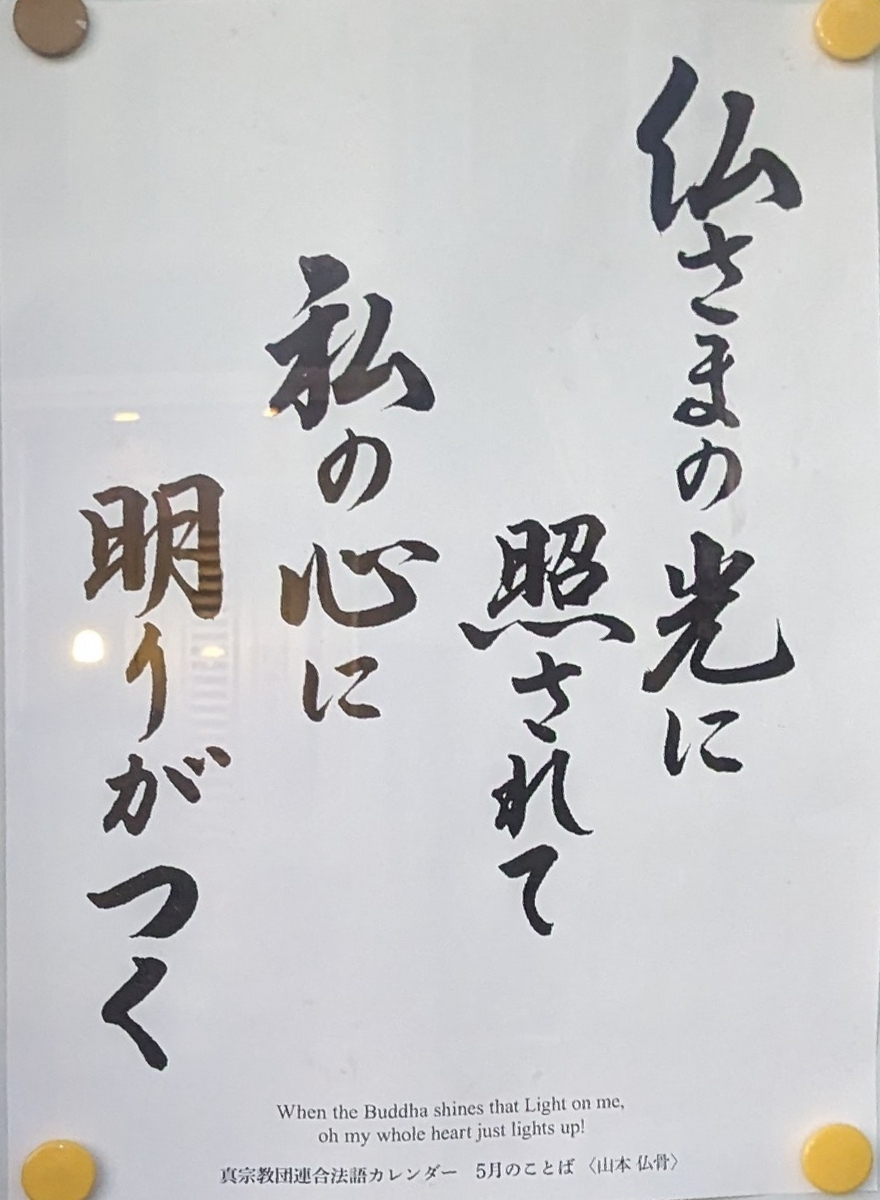 仏さまの光に
照されて
私の心に
明りがつく
When the Buddha shines that Light on me,
oh my whole heart just lights up!
真宗教団連合法語カレンダー　5月のことば〈山本 仏骨〉